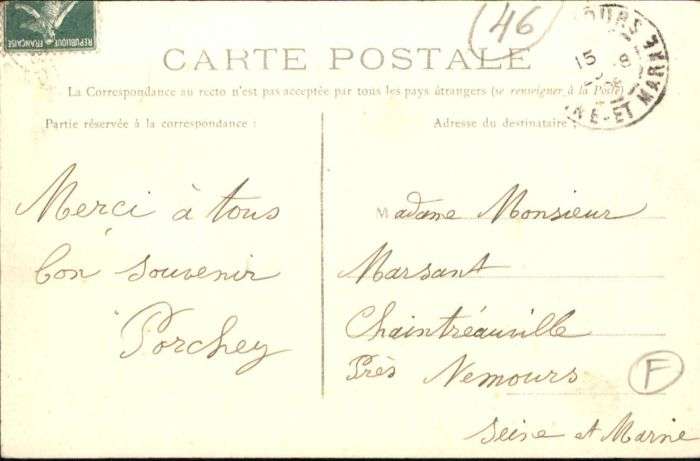 RÉPUBLIQUE FRANÇAISE
46
CARTE POSTALE
La Correspondance au recto n'est pas acceptée par tous les pays étrangers (se renseigner à la Poste)
Partie réservée à la correspondance :
Adresse du destinataire :
15 8
OURS
NE-ET MARNE
Merci à tous
bon souvenir
Porchey
Madame Monsieur
Marsant
Chaintréauville
Près Nemours
F
Seine et Marne